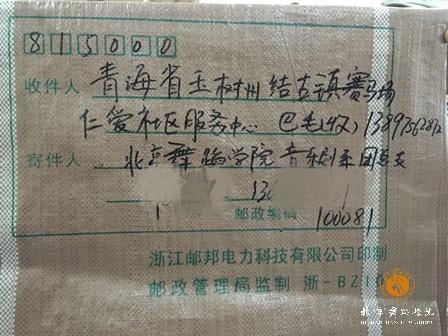 815000
收件人 青海省玉树州结古镇赛马场
仁爱社区服务中心 巴毛(收)
寄件人 北京舞蹈学院音乐剧系团总支
邮政编码 100081
浙江邮邦电力科技有限公司印制
邮政管理局监制 浙-BZ10
北京舞蹈学院